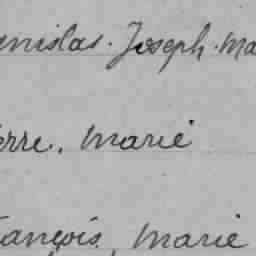 anislas. Joseph. Ma
erre. Marie
ançois, Marie